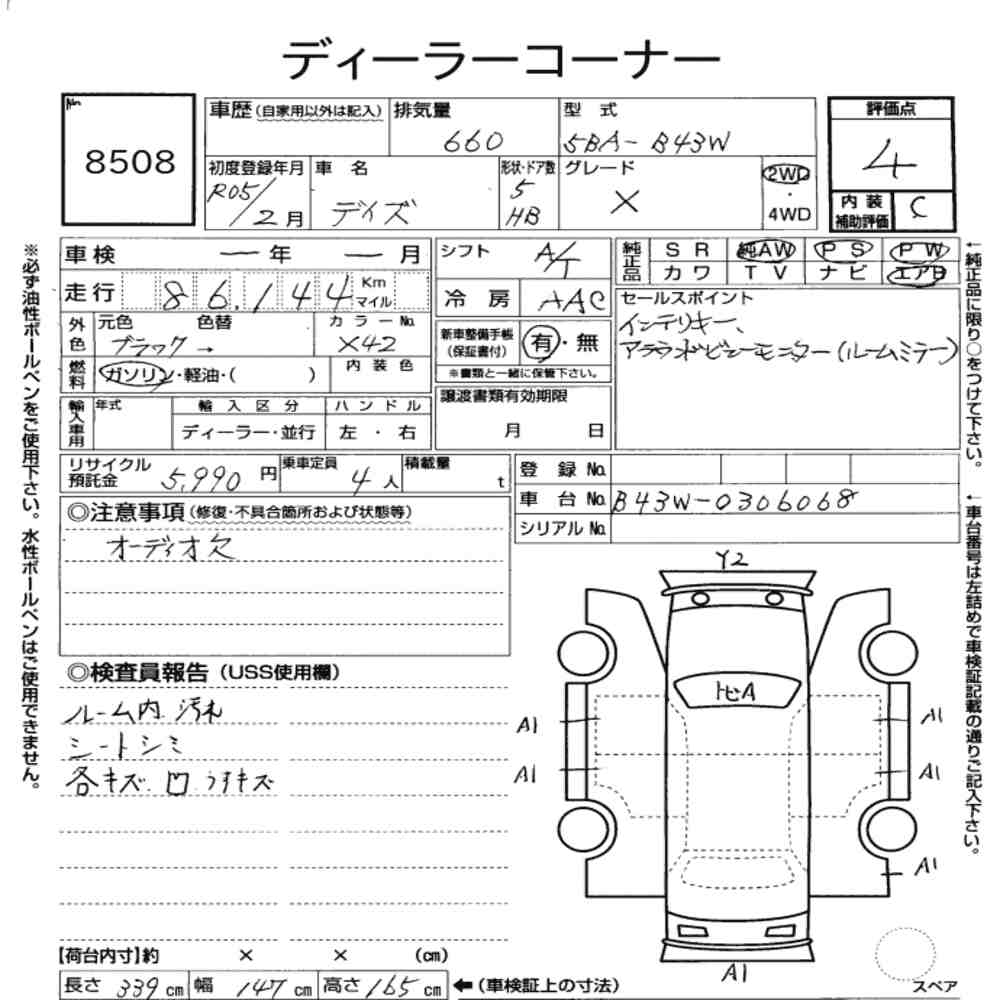 ディーラーコーナー
No.
8508
車歴(自家用以外は記入)
排気量
660
型 式
5BA-B43W
評価点
4
内装
補助評価
C
初度登録年月
R05/2月
車 名
デイズ
形状・ドア数
5
HB
グレード
X
2WD
・
4WD
車検 ー年 ー月
走行 86,144 Km マイル
外色
元色
ブラック→
色替
カラーNo.
X42
燃料
ガソリン・軽油・( )
内装色
輸入車用
年式
輸入区分
ディーラー・並行
ハンドル
左・右
シフト A/T
冷房 AAC
新車整備手帳
(保証書付)
有・無
※書類と一緒に保管下さい。
譲渡書類有効期限
月 日
純正品
SR 純AW PS PW
カワ TV ナビ エアB
セールスポイント
インテリキー、
アラウンドビューモニター(ルームミラー)
リサイクル
預託金
5,990円
乗車定員
4人
積載量
t
登録No.
車台No. B43W-0306068
シリアルNo.
◎注意事項(修復・不具合箇所および状態等)
オーディオ欠
◎検査員報告(USS使用欄)
ルーム内 汚れ
シートシミ
各キズ.凹 うすキズ
Y2
トビA
A1
A1
A1
A1
A1
A1
スペア
【荷台内寸】約 × × (cm)
長さ 339cm 幅 147cm 高さ 165cm ←(車検証上の寸法)
※必ず油性ボールペンをご使用下さい。水性ボールペンはご使用できません。
←純正品に限り○をつけて下さい。
←車台番号は左詰めで車検証記載の通りご記入下さい。